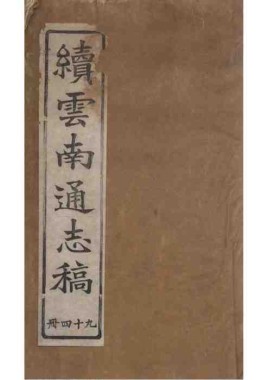 續雲南通志稿
九十四冊